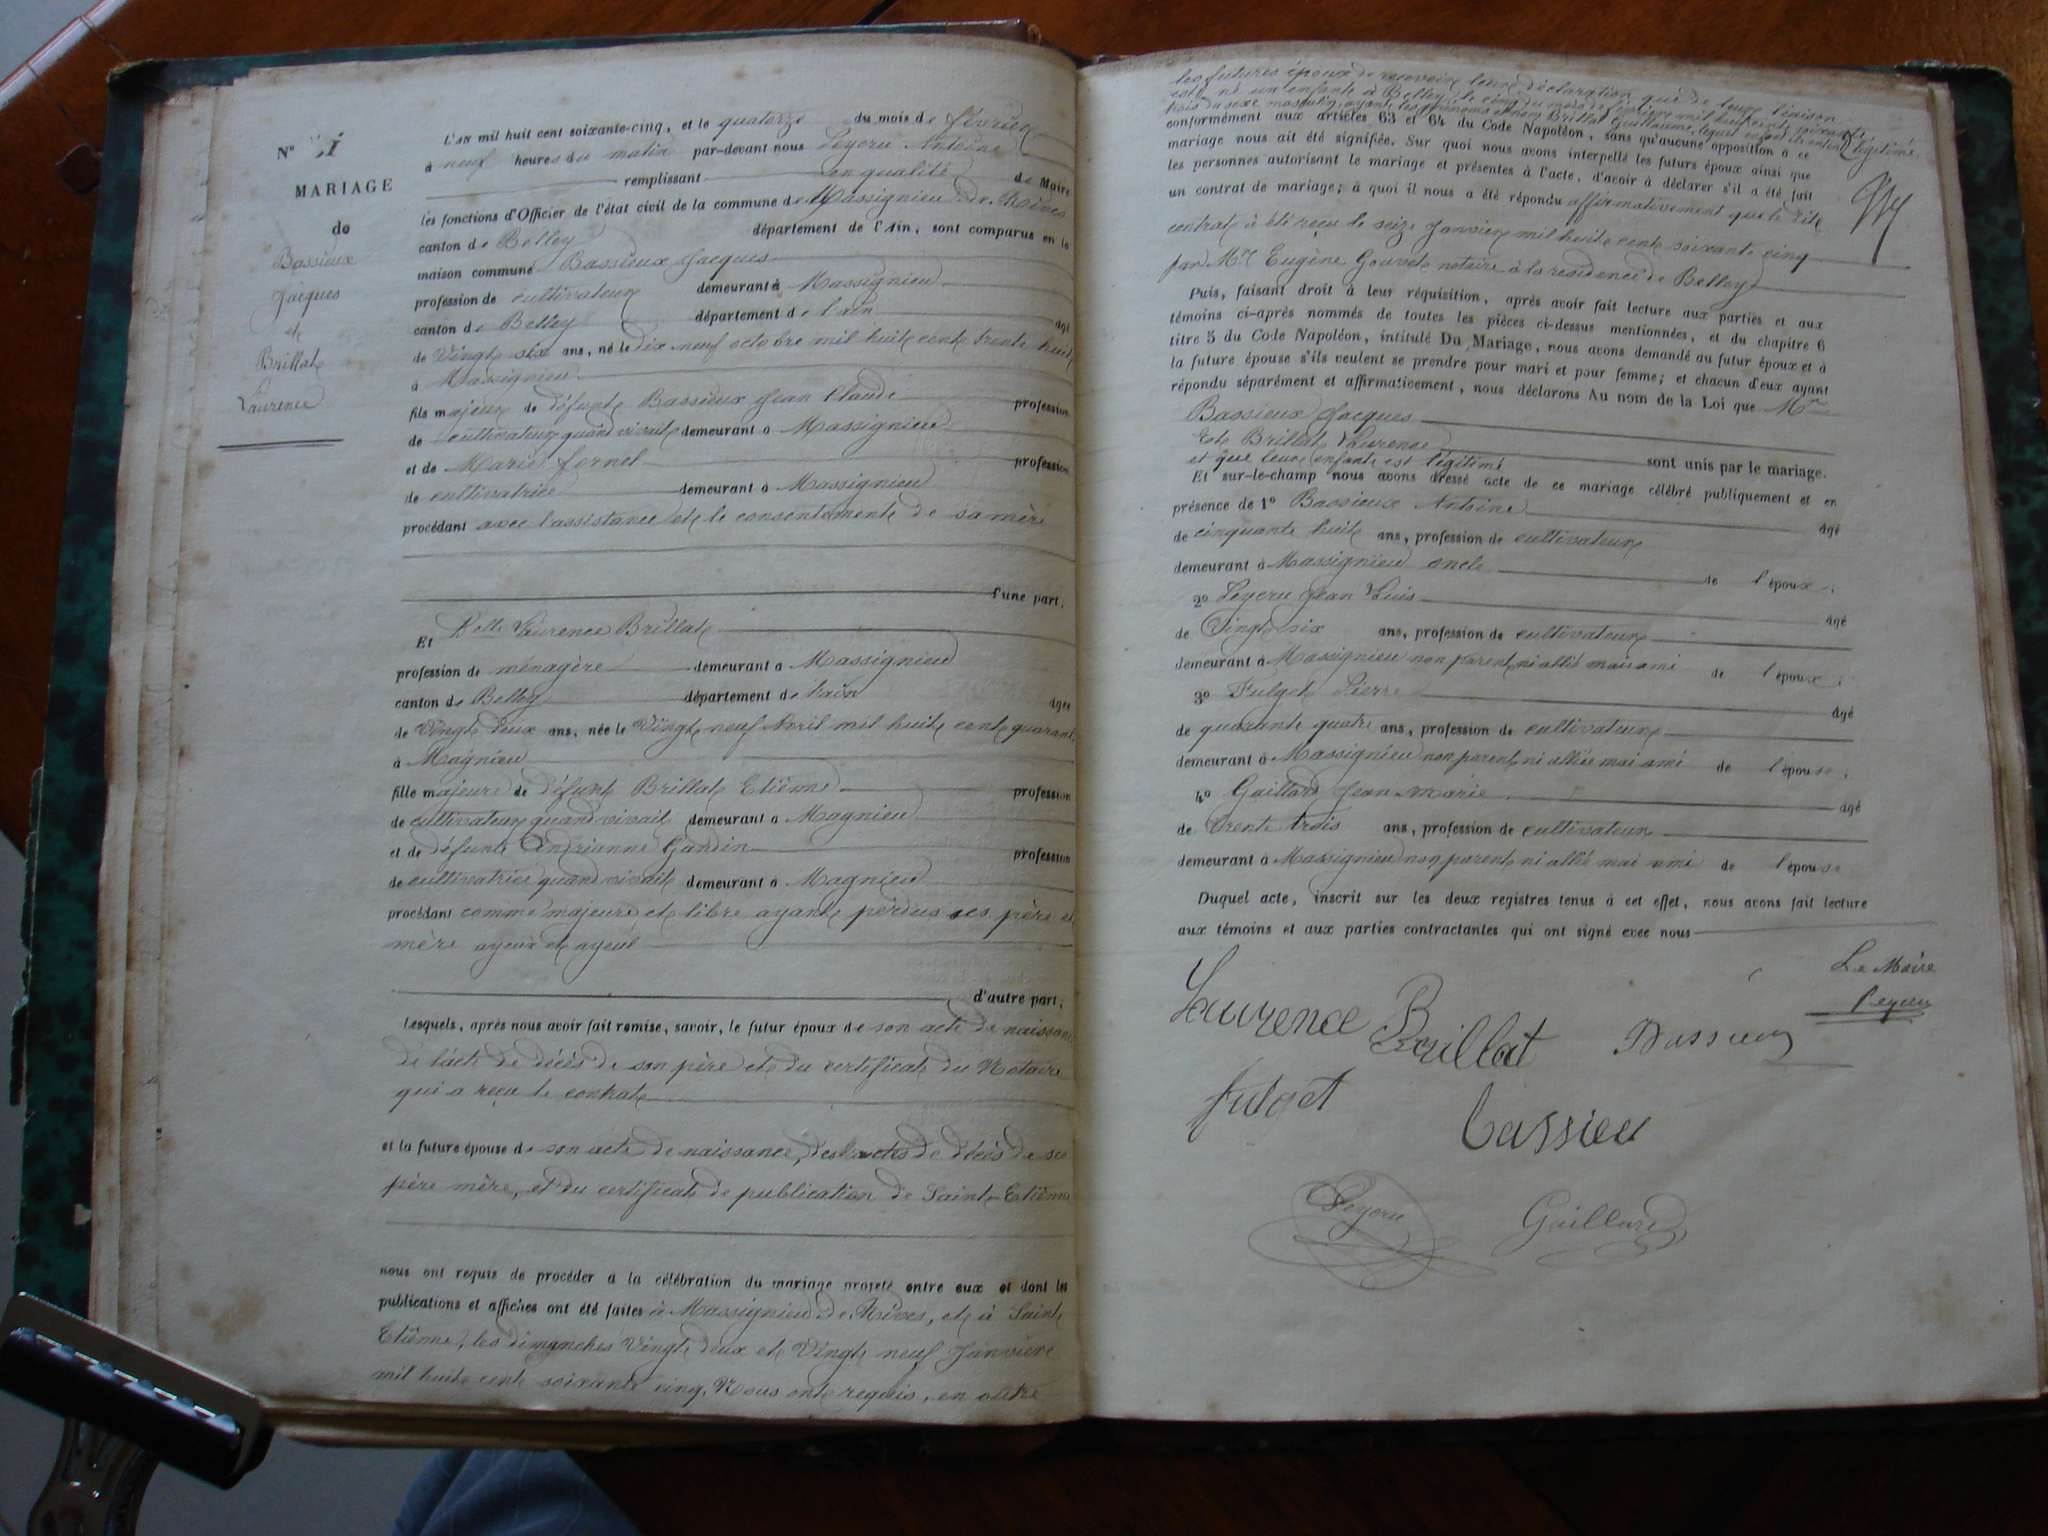 N°
MARIAGE
de
Bassieux
Jacques
et
Brillat
Laurence
L'AN mil huit cent soixante-cinq, et le quatorze du mois de février
à neuf heures du matin par-devant nous Peycru Antoine
remplissant en qualité de Maire
les fonctions d'Officier de l'état civil de la commune de Massignieu de Rives
canton de Belley département de l'Ain, sont comparus en la
maison commune Bassieux Jacques
profession de cultivateur demeurant à Massignieu
canton de Belley département de l'ain âgé
de Vingt six ans, né le dix neuf octobre mil huit cent trente huit
à Massignieu
fils majeur de défunt Bassieux Jean Claude profession
de cultivateur quand vivait demeurant à Massignieu
et de Marie fornel profession
de cultivatrice demeurant à Massignieu
procédant avec l'assistance et le consentement de sa mère
d'une part.
Et Delle Laurence Brillat
profession de ménagère demeurant à Massignieu
canton de Belley département de l'ain âgée
de Vingt deux ans, née le Vingt neuf Avril mil huit cent quarante
à Magnieu
fille majeure de défunt Brillat Etiènne profession
de cultivateur quand vivait demeurant à Magnieu
et de défunte Andrianne Gandin profession
de cultivatrice quand vivait demeurant à Magnieu
procédant comme majeure et libre ayant perdus ses père et
mère ayeux et ayeul
d'autre part,
Lesquels, après nous avoir fait remise, savoir, le futur époux de son acte de naissance
de l'acte de décès de son père et du certificat du Notaire
qui a reçu le contrat
et la future épouse de son acte de naissance, des actes de décès de ses
père mère, et du certificat de publication de Saint-Etiènne
nous ont requis de procéder à la célébration du mariage projeté entre eux et dont les
publications et affiches ont été faites à Massignieu de Rives, et à Saint
Etiènne, les dimanches Vingt deux et Vingt neuf Janvier
mil huit cent soixante cinq. Nous ont requis, en outre
les futures époux de recevoir leur déclaration que de leur liaison
est né un enfant à Belley, le cinq du mois de mil huit cent soixante
trois du sexe masculin, ayant les prénoms et nom Brillat Guillaume, lequel enfant ils entend légitimé
conformément aux articles 63 et 64 du Code Napoléon, sans qu'aucune opposition à ce
mariage nous ait été signifiée. Sur quoi nous avons interpellé les futurs époux ainsi que
les personnes autorisant le mariage et présentes à l'acte, d'avoir à déclarer s'il a été fait
un contrat de mariage; à quoi il nous a été répondu affirmativement que le dit
contrat à été reçu le seize Janvier mil huit cent soixante cinq
par Mre Eugène Gourdet notaire à la residence de Belley
Puis, faisant droit à leur réquisition, après avoir fait lecture aux parties et aux
témoins ci-après nommés de toutes les pièces ci-dessus mentionnées, et du chapitre 6
titre 5 du Code Napoléon, intitulé Du Mariage, nous avons demandé au futur époux et à
la future épouse s'ils veulent se prendre pour mari et pour femme; et chacun d'eux ayant
répondu séparément et affirmativement, nous déclarons Au nom de la Loi que Mr
Bassieux Jacques
Et Brillat Laurence
et que leur enfant est légitimé sont unis par le mariage.
Et sur-le-champ nous avons dressé acte de ce mariage célébré publiquement et en
présence de 1° Bassieux Antoine âgé
de cinquante huit ans, profession de cultivateur
demeurant à Massignieu oncle de l'époux;
2° Peycru Jean Louis âgé
de Vingt six ans, profession de cultivateur
demeurant à Massignieu non parent ni allié mais ami de l'époux;
3° Fulget Pierre âgé
de quarante quatre ans, profession de cultivateur
demeurant à Massignieu non parent ni alliée mai ami de l'épouse;
4° Gaillard Jean-marie âgé
de trente trois ans, profession de cultivateur
demeurant à Massignieu non parent ni allié mai ami de l'épouse
Duquel acte, inscrit sur les deux registres tenus à cet effet, nous avons fait lecture
aux témoins et aux parties contractantes qui ont signé avec nous
Le Maire
Peycru
Laurence Brillat Bassieux
fulget bassieu
Peycru Gaillard